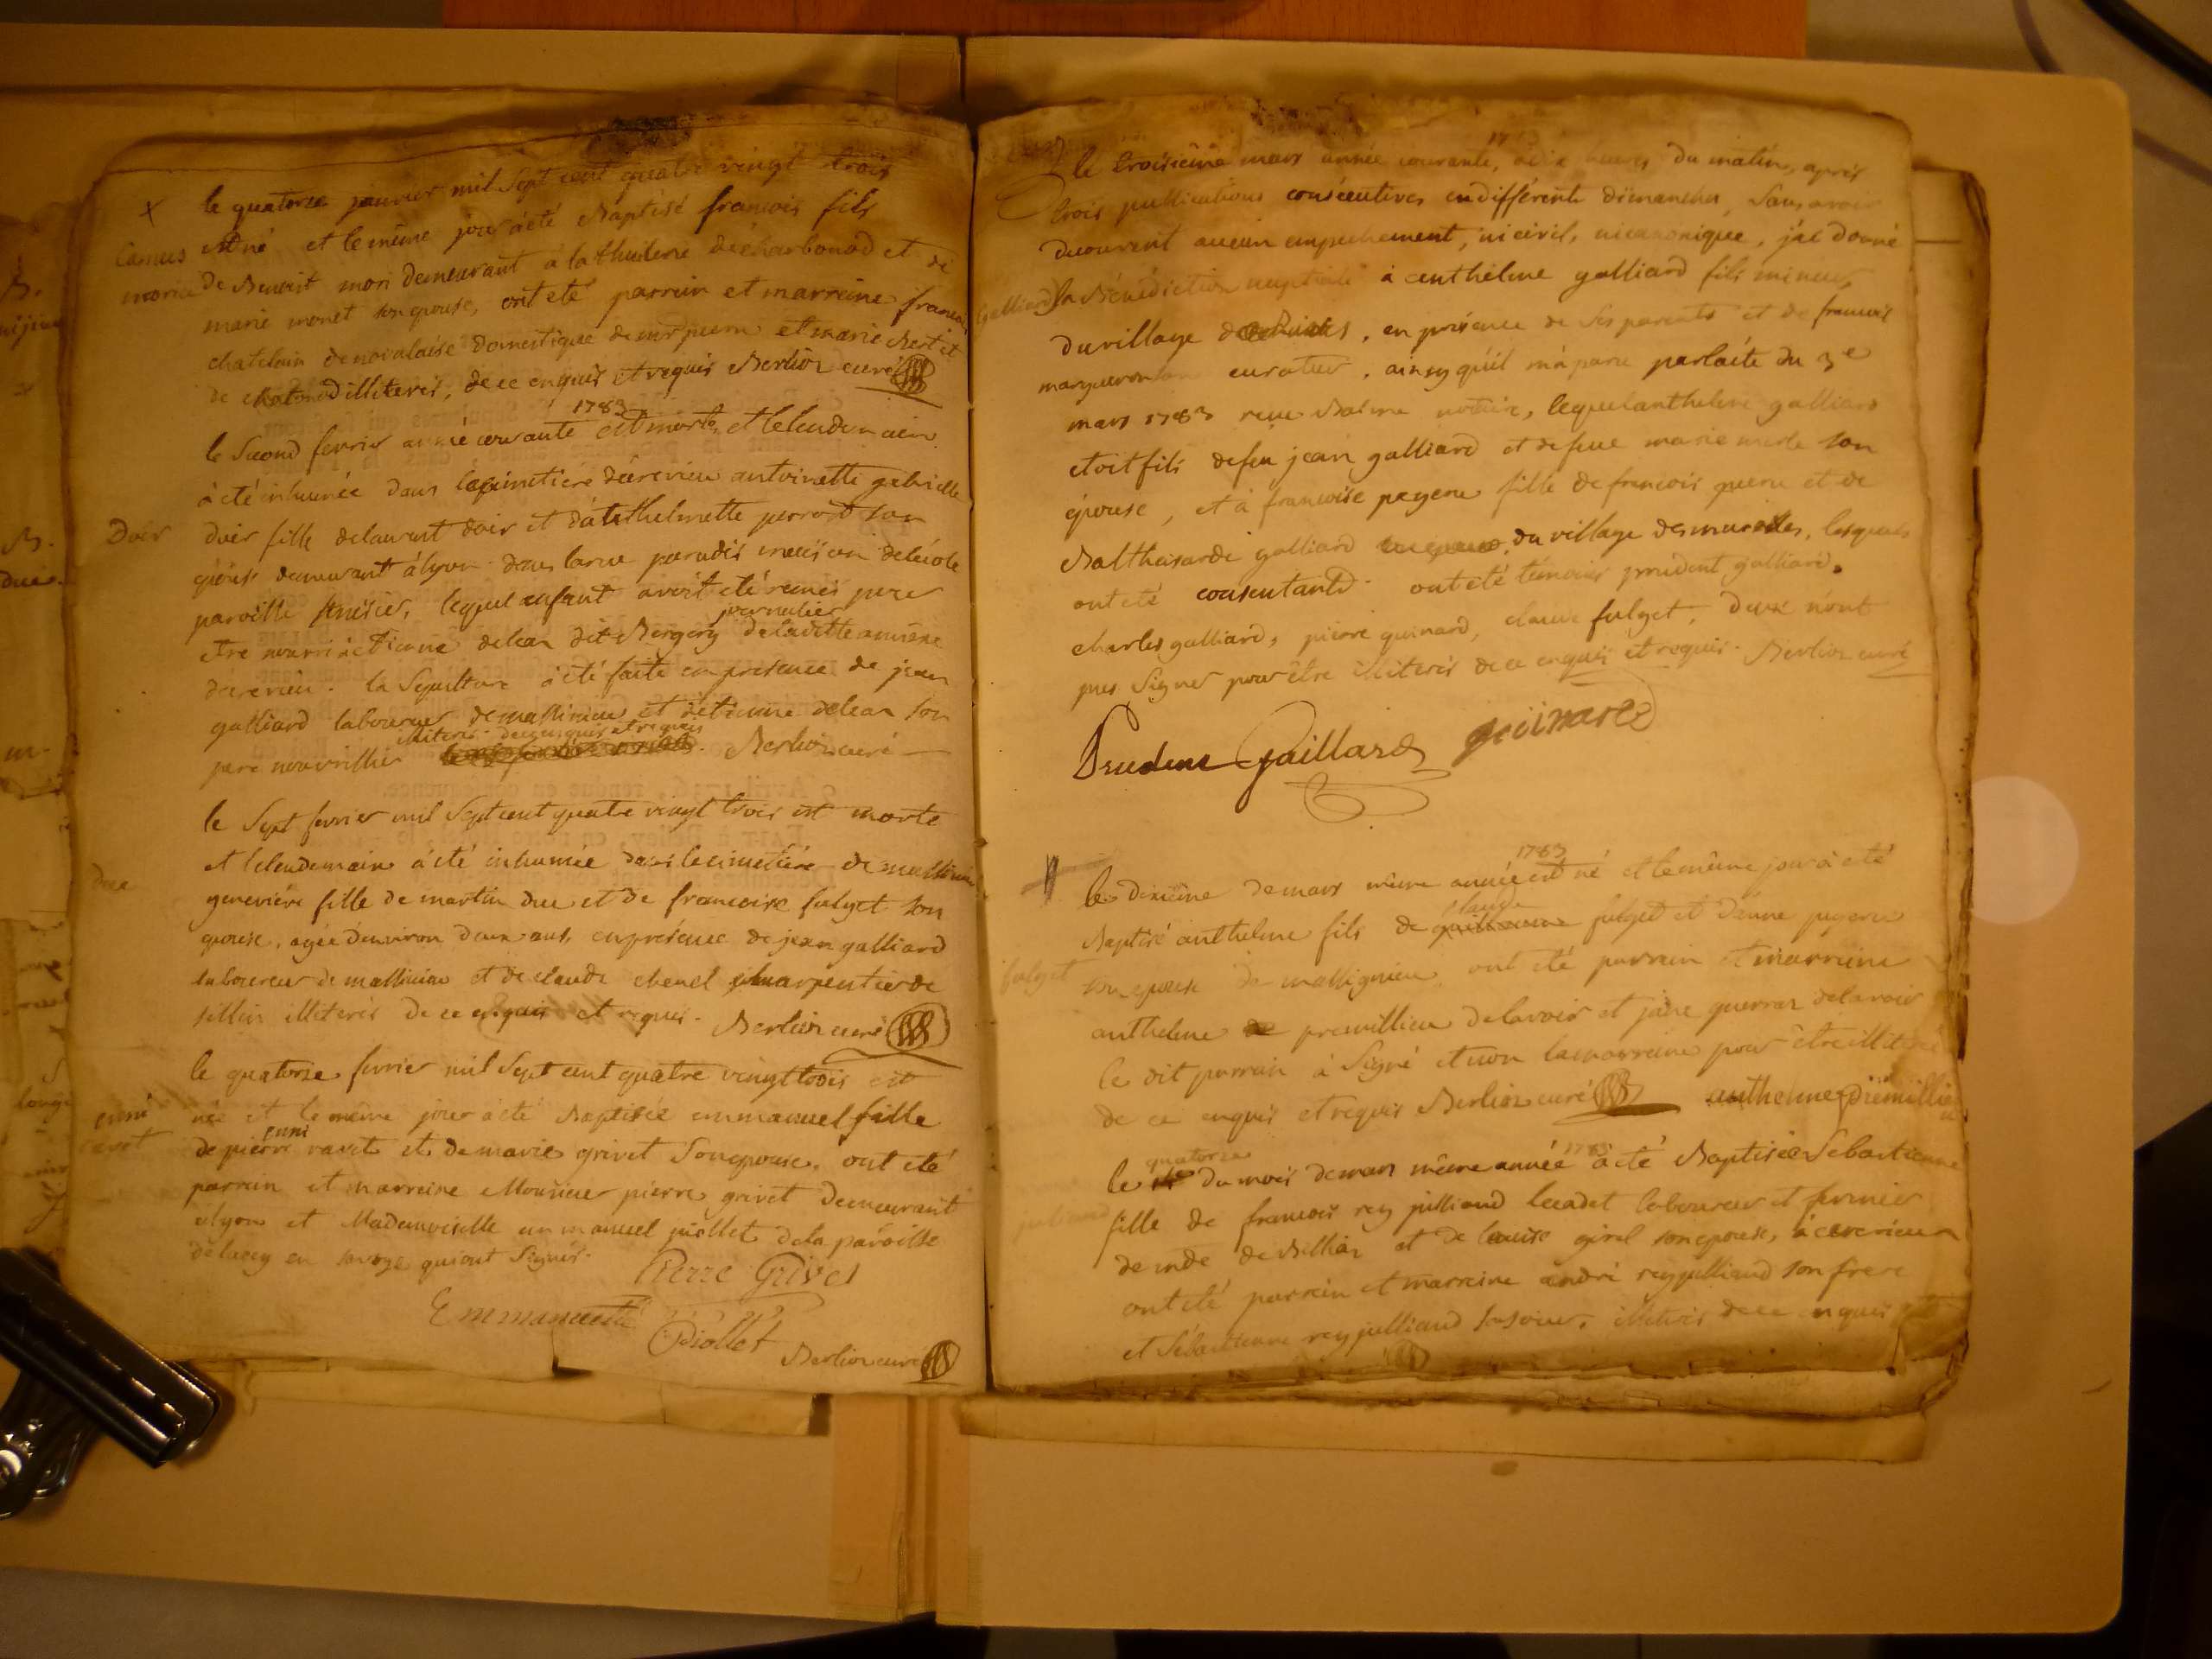 le quatorze janvier mil Sept cent quatre vingt trois
est né et le même jour à été Baptisé francois fils
Camus
morin
de Benoist mori demeurant à la thuilerie de charbonod et de
marie monet son epouse, ont été parrein et marreine francois
chatelain de novalaise domestique de mr et marie Bertet
de illiterés, de ce enquis et requis Berlioz curé
1783
le Second fevrier année courante est morte, et le lendemain
à été inhumée dans le cimetiere d'arevieu antoinette gabrielle
Doir
doir fille de laurent doir et d'anthelmette perrod son
epouse demeurant à lyon dans la rue paradis maison de l'école
paroisse lequel enfant avoit été remis pour
journalier
etre nourri à Etienne delean dit Bergery de laditte annexe
d'arevieu. la Sepulture à été faite en presence de jean
galliard laboureur de massinieu et d'etienne delean son
illiterés de ce enquis et requis
pere nourrissier Berlioz curé
le Sept fevrier mil Sept cent quatre vingt trois est morte
et le lendemain à été inhumée dans le cimetiére de massinieu
duc
geneviéve fille de martin duc et de francoise fulget son
epouse, agée d'environ deux ans, en présence de jean galliard
laboureur de massinieu et de claude chenel charpentier de
sillin illiterés de ce enquis et requis. Berlioz curé
le quatorze fevrier mil Sept cent quatre vingt trois est
née et le même jour à été Baptisée emmanuel fille
enni
ravet
enni
de pierre ravet et de marie grivet Son epouse, ont été
parrein et marreine Monsieur pierre grivet demeurant
à lyon et Mademoiselle emmanuel piollet de la paroisse
de lucey en savoye qui ont Signés.
Pierre Grivet
Emmanuelle
Piollet
Berlioz curé
1783
le troisiéme mars année courante, à dix heures du matin, aprés
trois publications consécutives en différents dimanches, Sans avoir
decouvert aucun empechement, ni civil, ni canonique, j'ai donné
galliard
la Bénédiction nuptiale à anthelme galliard fils mineur,
du village de , en présence de Ses parents et de francois
margueron curateur, ainsy qu'il m'a paru par l'acte du 3e
mars 1783 reçu Balme notaire, lequel anthelme galliard
etoit fils de feu jean galliard et de feue marie merle son
épouse, et à francoise peyene fille de francois et de
Balthasarde galliard du village des mures, lesquels
ont été consentants ont été témoins prudent galliard,
charles galliard, pierre guinard, claude fulget, deux n'ont
pas Signer pour être illiterés de ce enquis et requis. Berlioz curé
Prudent Gaillard guimard
1783
le dixiéme de mars même année est né et le même jour à été
claude
Baptisé anthelme fils de guillaume fulget et d'anne
fulget
son epouse de massignieu, ont été parrein et marreine
anthelme de premillieu de lavoir et guerrar de lavoir
le dit parrein à Signé et non la marreine pour être illiterée
de ce enquis et requis Berlioz curé anthelme premillieu
quatorze
1783
le 14 du mois de mars même année à été Baptisée Sébastienne
julliand
fille de francois rey julliand le cadet laboureur et fermier
de mde de Billiaz et de louise girel son epouse, à cerevieu
ont été parrein et marreine andré rey julliand son frere
et Sébastienne rey julliand sa soeur, illiterés de ce enquis